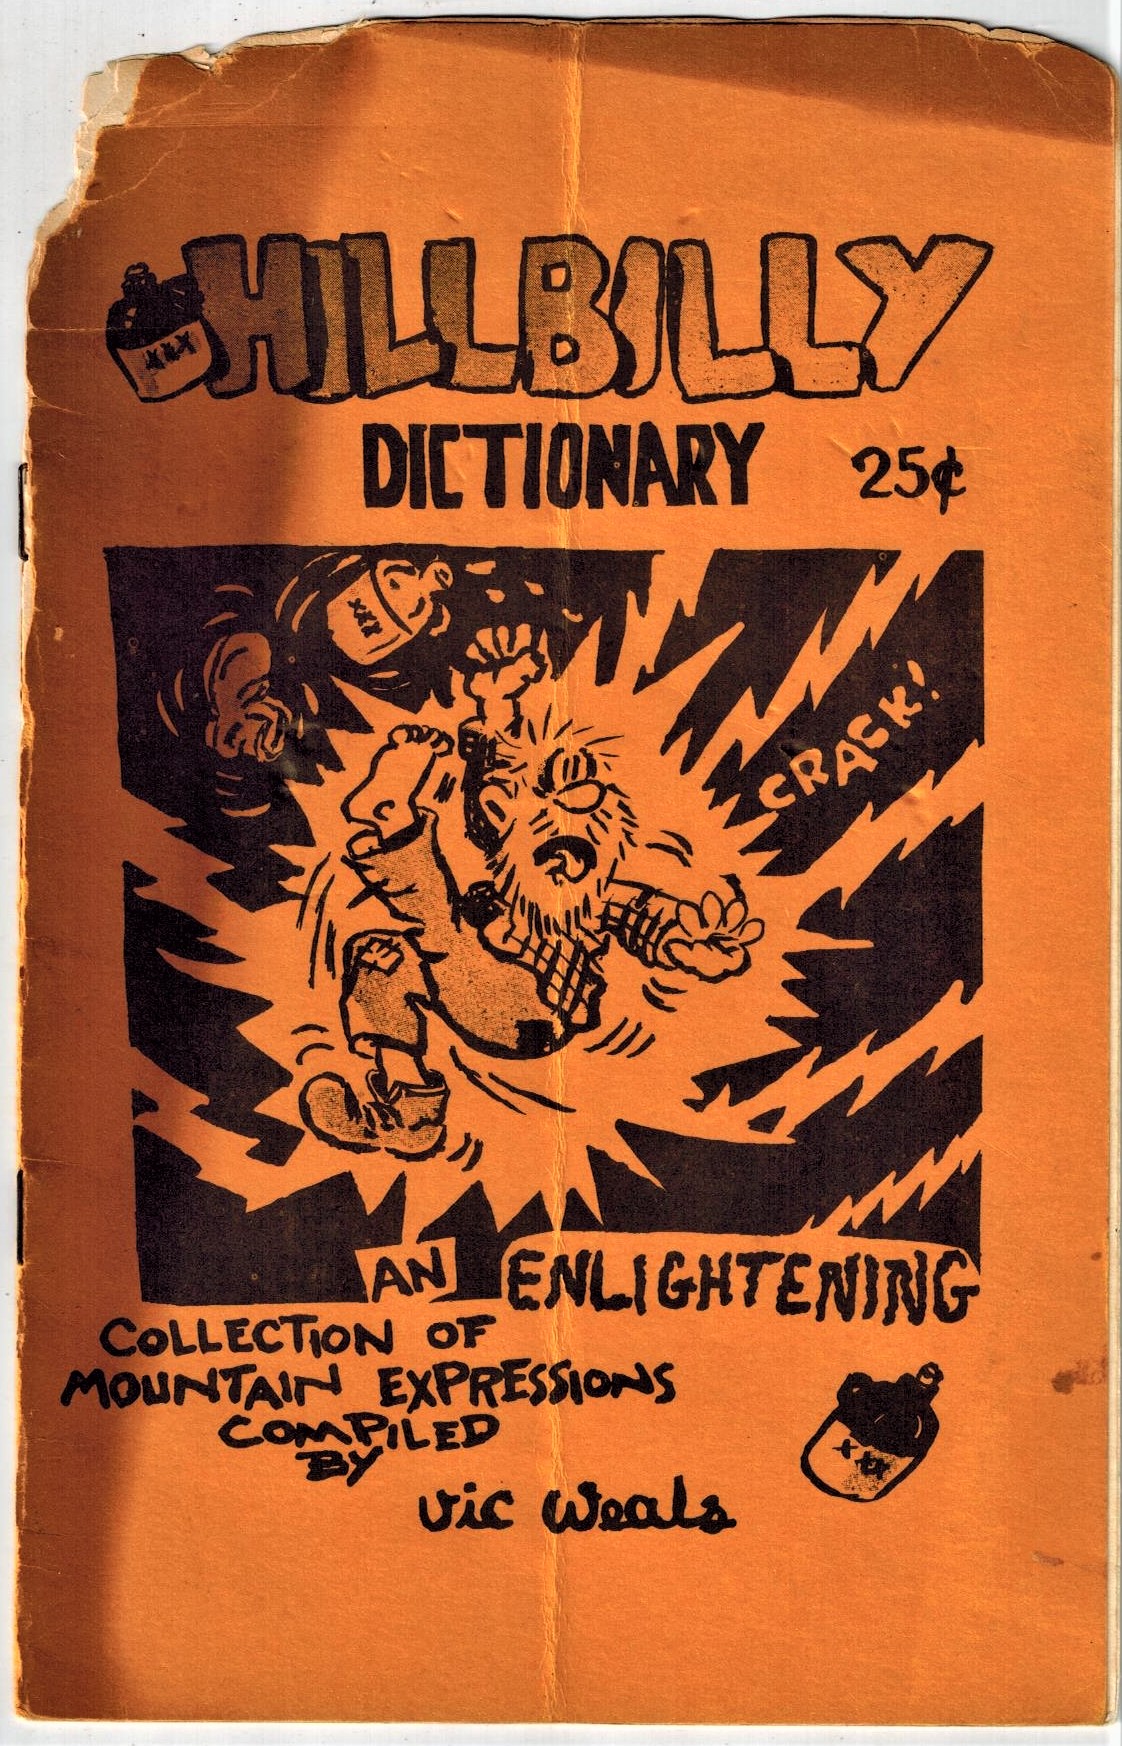 XXX
HILLBILLY
DICTIONARY
25¢
XXX
CRACK!
AN ENLIGHTENING
COLLECTION OF
MOUNTAIN EXPRESSIONS
COMPILED
BY
Vic Weals
XXX